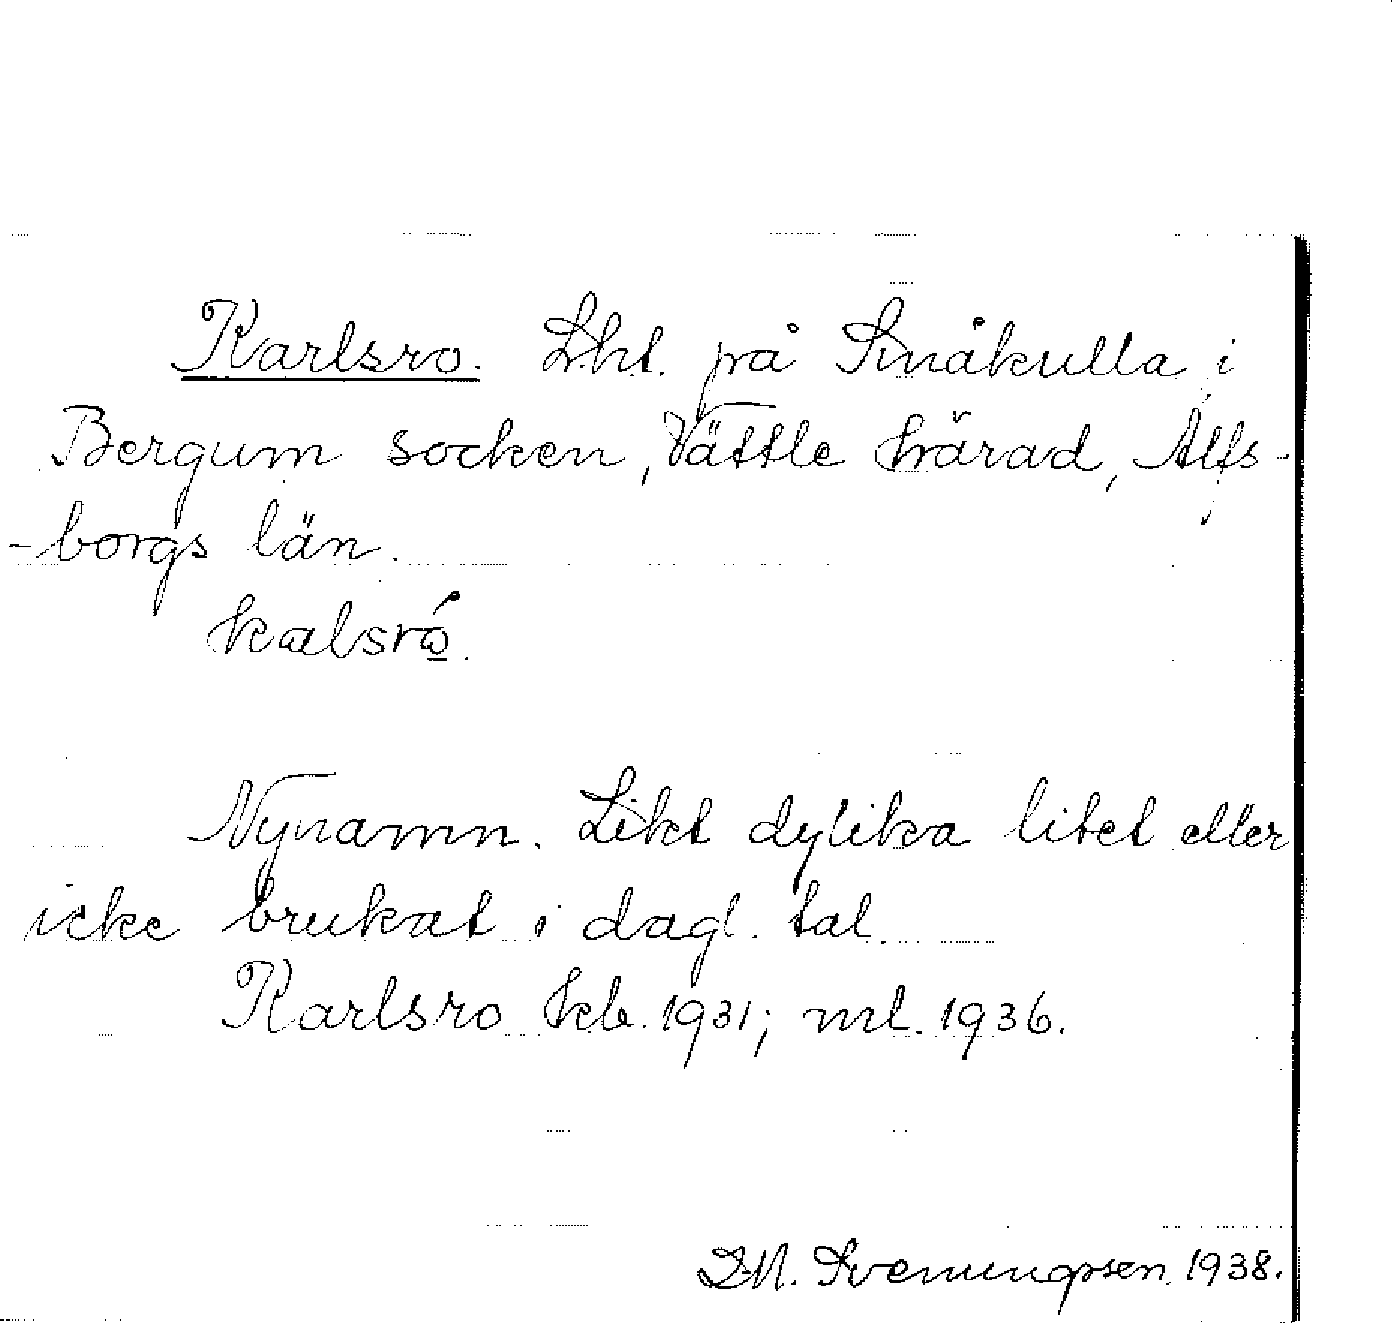 Karlsro. Lht. på Småkulla i
Bergum socken, Vättle härad, Älfs-
-borgs län.
kalsró.
Nynamn. Likt dylika litet eller
icke brukat i dagl. tal.
Karlsro kb. 1931; ml. 1936.
Sveningsen 1938.